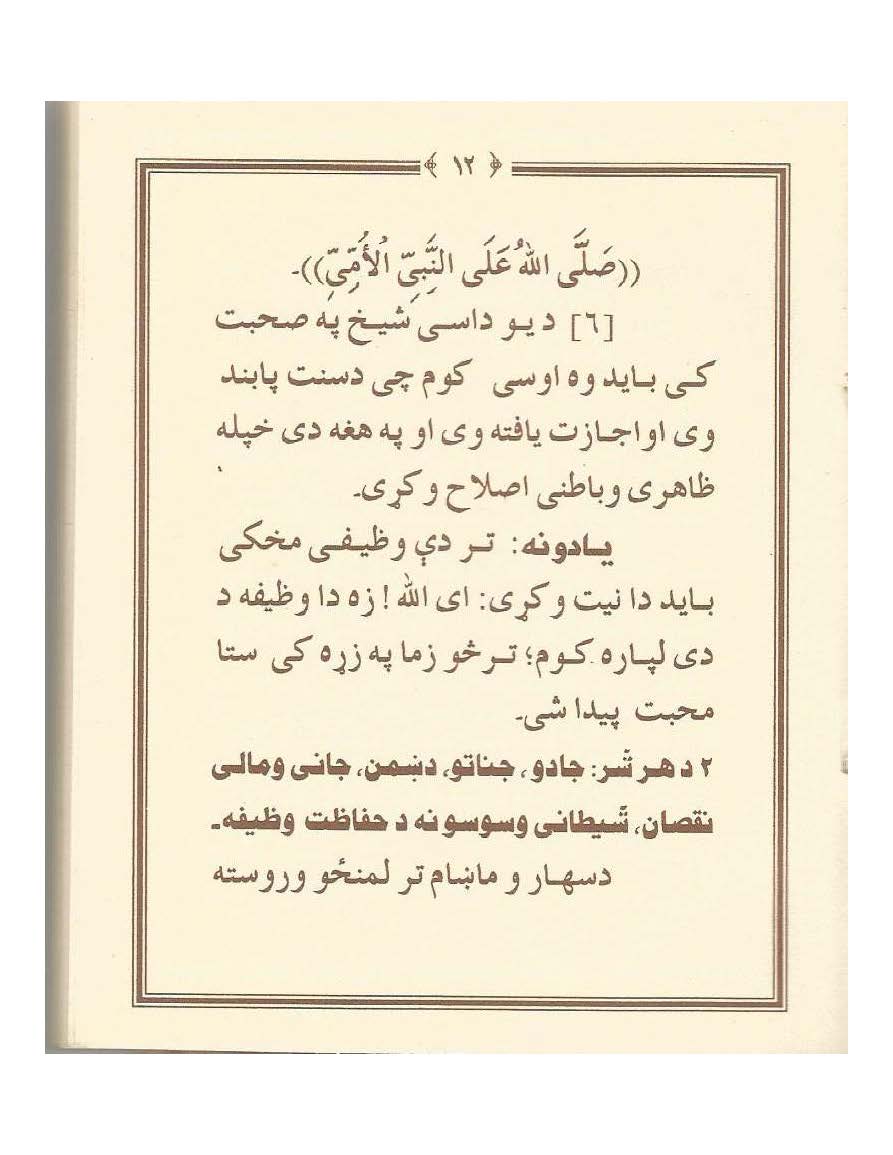 ﴿ ١٢ ﴾
((صَلَّى اللهُ عَلَى النَّبِيِّ الْأُمِّيِّ))۔
[٦] د يو داسی شيخ په صحبت
کی بايد وه اوسی کوم چی دسنت پابند
وی او اجازت يافته وی او په هغه دی خپله
ظاهری وباطنی اصلاح وکړی۔
يادونه: تر دې وظيفی مخکی
بايد دا نيت وکړی: ای الله ! زه دا وظيفه د
دی لپاره کوم؛ ترڅو زما په زړه کی ستا
محبت پيدا شی۔
٢ د هر شر: جادو، جناتو، دښمن، جانی ومالی
نقصان، شيطانی وسوسو نه د حفاظت وظيفه۔
دسهار و ماښام تر لمنځو وروسته